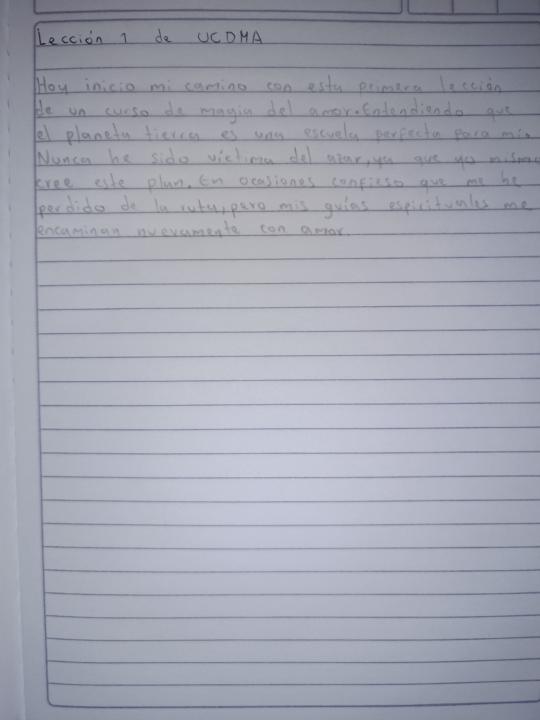 Lección 1 de UCDMA
Hoy inicio mi camino con esta primera lección
de un curso de magia del amor. Entendiendo que
el planeta tierra es una escuela perfecta para mi.
Nunca he sido víctima del azar, ya que yo misma
cree este plan. En ocasiones confieso que me he
perdido de la ruta, pero mis guías espirituales me
encaminan nuevamente con amor.